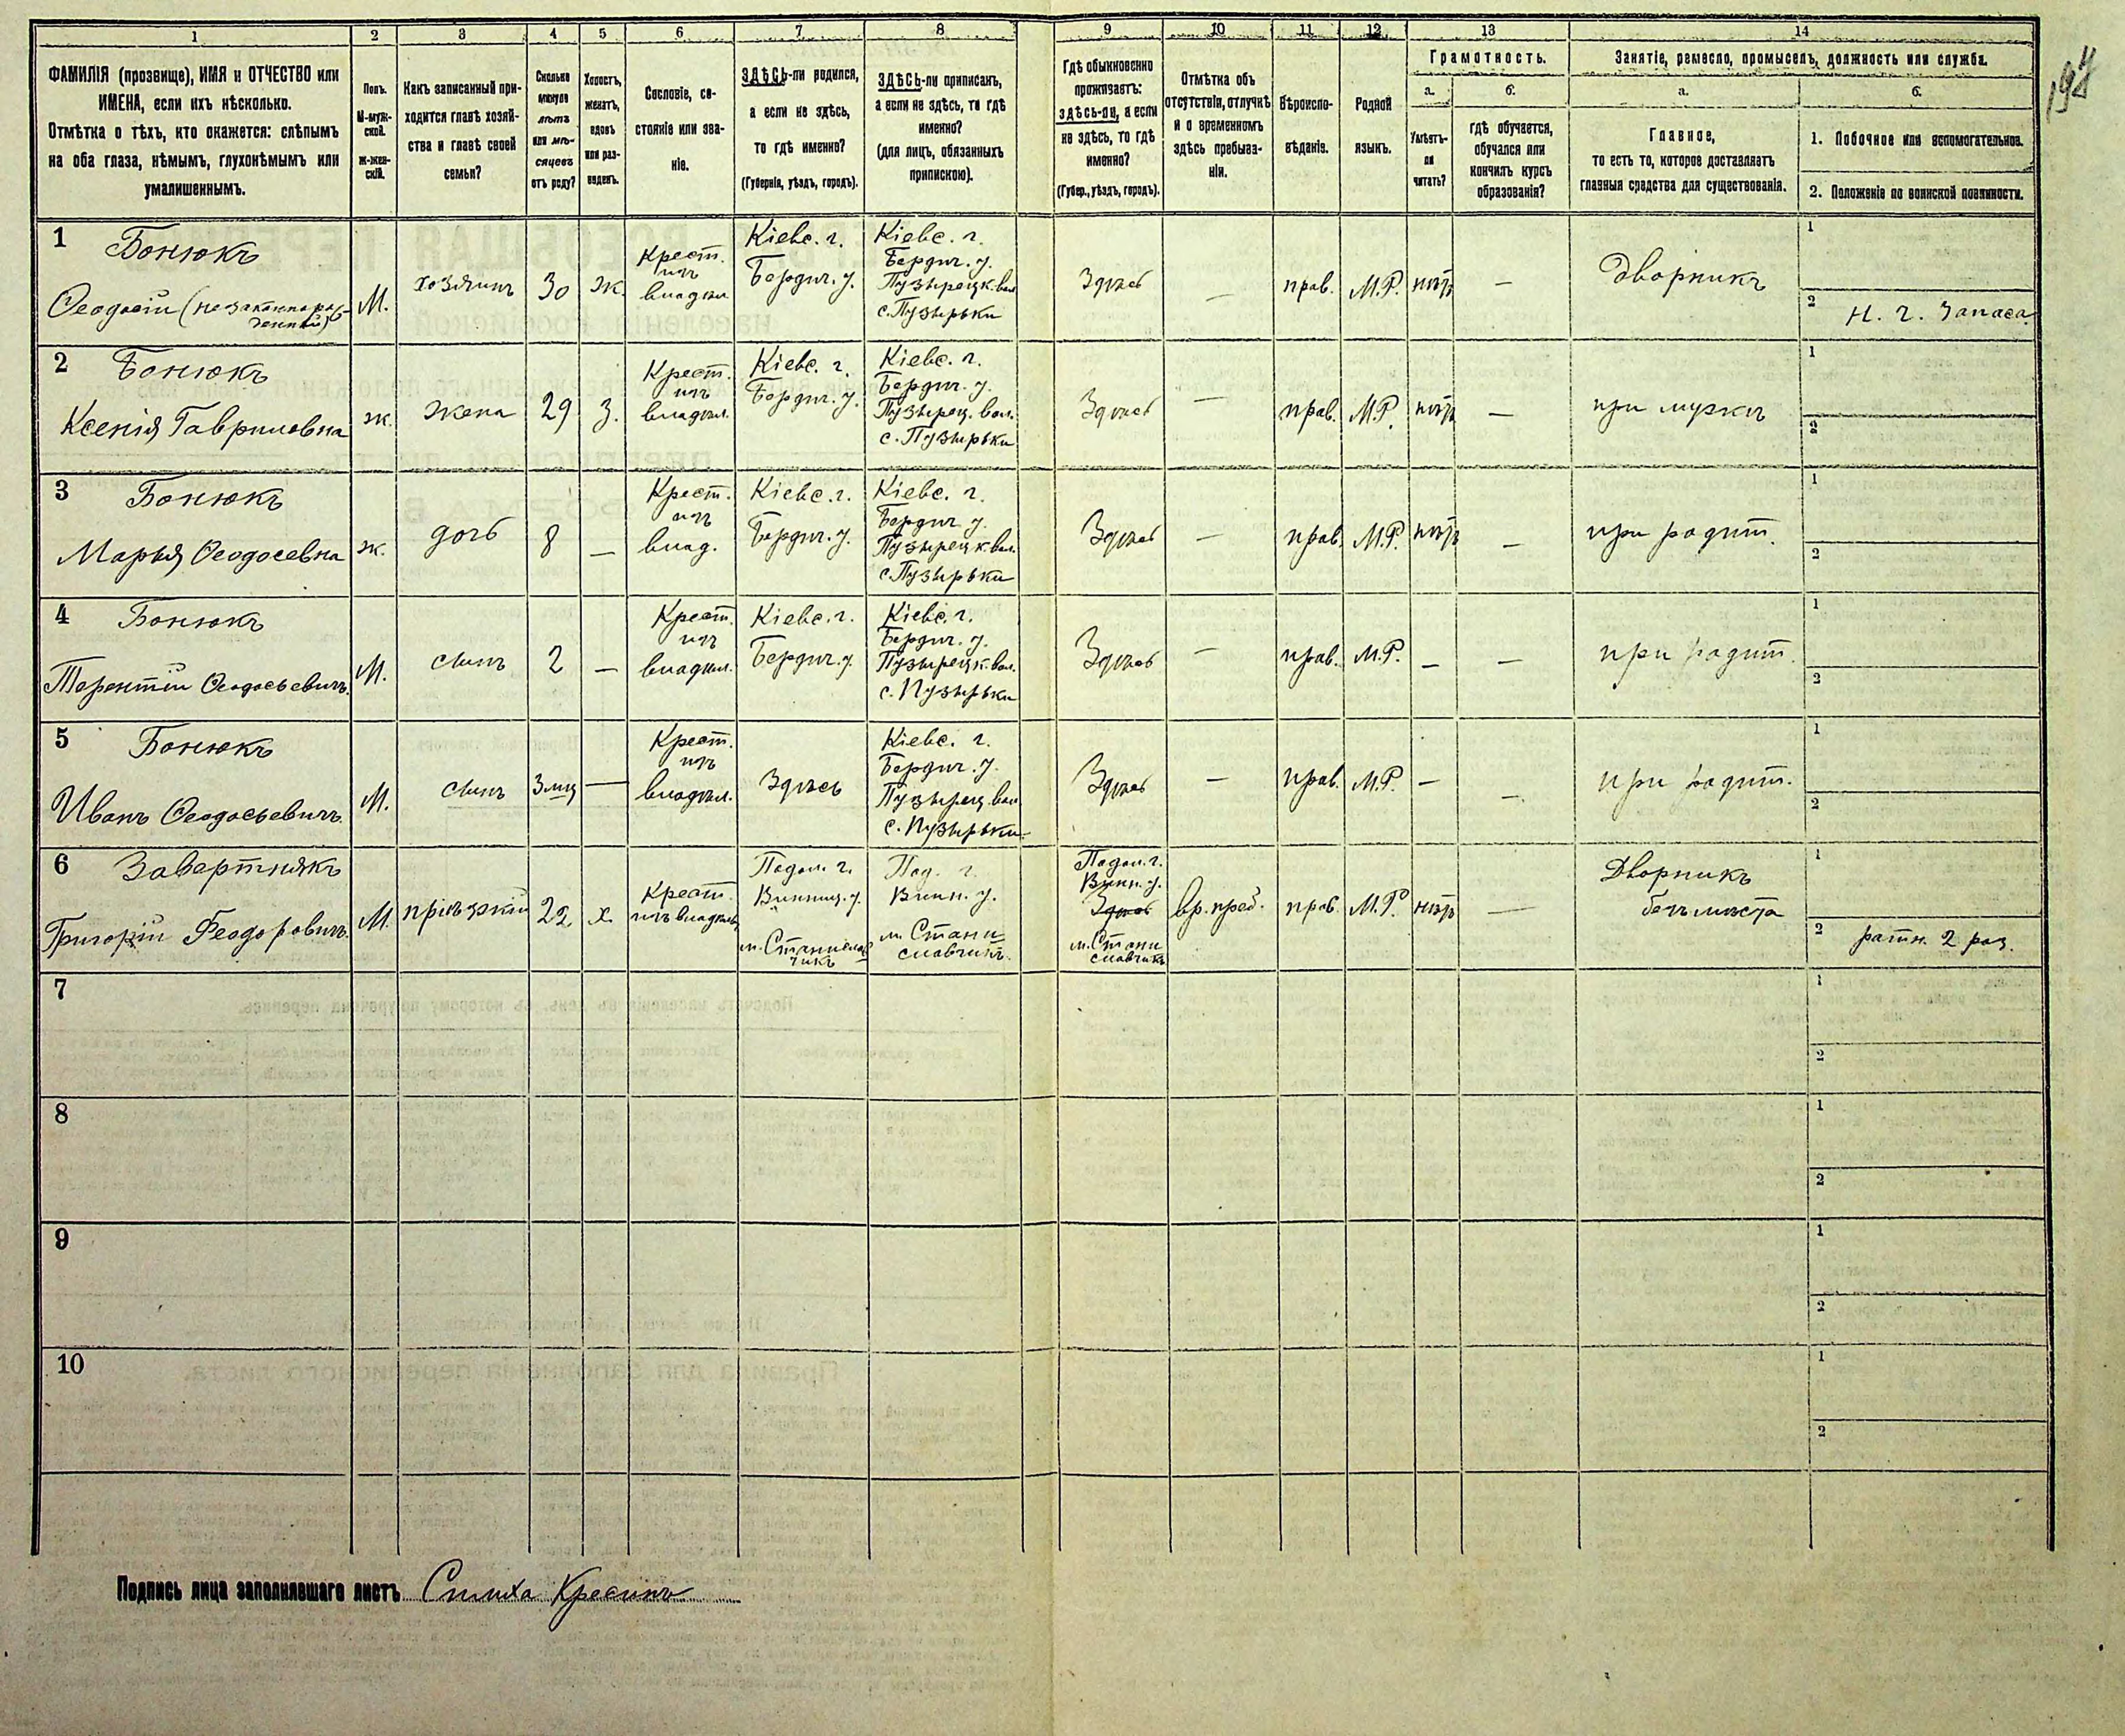 197
1
2
3
4
5
6
7
8
9
10
11
12
13
14
ФАМИЛІЯ (прозвище), ИМЯ и ОТЧЕСТВО или
ИМЕНА, если ихъ нѣсколько.
Отмѣтка о тѣхъ, кто окажется: слѣпымъ
на оба глаза, нѣмымъ, глухонѣмымъ или
умалишеннымъ.
Полъ.
М-муж-
ской.
Ж-жен-
скій.
Какъ записанный при-
ходится главѣ хозяй-
ства и главѣ своей
семьи?
Сколько
минуло
лѣтъ
или мѣ-
сяцевъ
отъ роду?
Холостъ,
женатъ,
вдовъ
или раз-
веденъ.
Сословіе, со-
стояніе или зва-
ніе.
ЗДѢСЬ-ли родился,
а если не здѣсь,
то гдѣ именно?
(Губернія, уѣздъ, городъ).
ЗДѢСЬ-ли приписанъ,
а если не здѣсь, то гдѣ
именно?
(для лицъ, обязанныхъ
припискою).
Гдѣ обыкновенно
проживаетъ:
здѣсь-ли, а если
не здѣсь, то гдѣ
именно?
(Губер., уѣздъ, городъ).
Отмѣтка объ
отсутствіи, отлучкѣ
и о временномъ
здѣсь пребыва-
ніи.
Вѣроиспо-
вѣданіе.
Родной
языкъ.
Грамотность.
а.
б.
Умѣетъ-
ли
читать?
гдѣ обучается,
обучался или
кончилъ курсъ
образованія?
Занятіе, ремесло, промыселъ, должность или служба.
а.
б.
Главное,
то есть то, которое доставляетъ
главныя средства для существованія.
1. Побочное или вспомогательное.
2. Положеніе по воинской повинности.
1
Бонюкъ
Ѳеодосій (незаконнорож-
денный)
М.
хозяинъ
30
ж.
Крест.
изъ
владѣл
Кіевс. г.
Бердич. у.
Кіевс. г.
Бердич. у.
Пузырецк. вол
с. Пузырьки
Здѣсь
—
прав.
М.Р.
нѣтъ
—
Дворникъ
1
2
Н. ч. запаса
2
Бонюкъ
Ксенія Гавриловна
ж.
жена
29
з.
Крест.
изъ
владѣл.
Кіевс. г.
Бердич. у.
Кіевс. г.
Бердич. у.
Пузырец. вол.
с. Пузырьки
Здѣсь
—
прав.
М.Р.
нѣтъ
—
при мужѣ
1
2
3
Бонюкъ
Марья Ѳеодосевна
ж.
дочь
8
—
Крест.
изъ
влад.
Кіевс. г.
Бердич. у.
Кіевс. г.
Бердич. у.
Пузырецк вол.
с. Пузырьки
Здѣсь
—
прав.
М.Р.
нѣтъ
—
при родит.
1
2
4
Бонюкъ
Терентій Ѳеодосьевичъ
М.
сынъ
2
—
Крест.
изъ
владѣл.
Кіевс. г.
Бердич. у.
Кіевс. г.
Бердич. у.
Пузырецк. вол.
с. Пузырьки
Здѣсь
—
прав.
М.Р.
—
—
при родит.
1
2
5
Бонюкъ
Иванъ Ѳеодосьевичъ
М.
сынъ
3 мѣц
—
Крест.
изъ
владѣл.
Здѣсь
Кіевс. г.
Бердич. у.
Пузырец. вол
с. Пузырьки
Здѣсь
—
прав.
М.Р.
—
—
при родит.
1
2
6
Завертнякъ
Григорій Феодоровичъ
М.
пріѣзжій
22
х.
Крест.
изъ владѣль
Подол. г.
Винниц. у.
м. Станислав
чикъ
Под. г.
Винн. у.
м. Стани
славчикъ
Подол. г.
Винн. у.
Здѣсь
м. Стани
славчикъ
вр. преб.
прав.
М.Р
нѣтъ
—
Дворникъ
безъ мѣста
1
2
ратн. 2 раз.
7
1
2
8
1
2
9
1
2
10
1
2
Подпись лица заполнявшаго листъ Симха Кресинъ